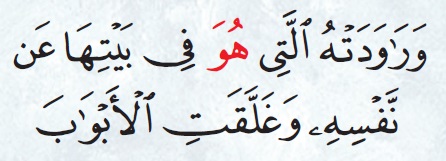 وَرَٰوَدَتْهُ ٱلَّتِى هُوَ فِى بَيْتِهَا عَن
نَّفْسِهِۦ وَغَلَّقَتِ ٱلْأَبْوَٰبَ